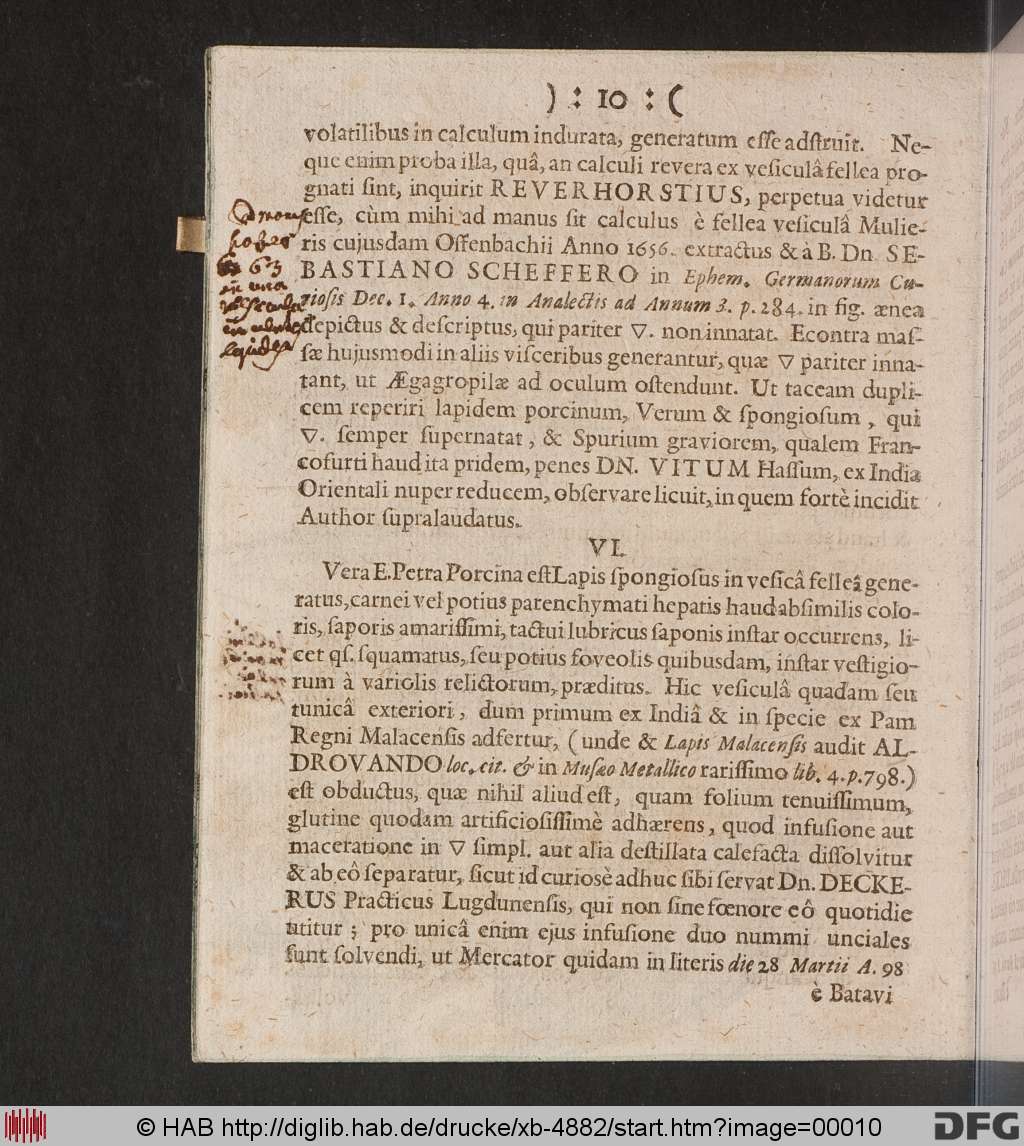 ) : 10 : (
volatilibus in calculum indurata, generatum eſſe adſtruit. Ne-
que enim proba illa, quâ, an calculi revera ex veſiculâ fellea pro-
gnati ſint, inquirit REVERHORSTIUS, perpetua videtur
eſſe, cùm mihi ad manus ſit calculus è fellea veſiculâ Mulie-
ris cujusdam Offenbachii Anno 1656. extractus & à B. Dn. SE-
BASTIANO SCHEFFERO in Ephem. Germanorum Cu-
rioſis Dec. 1. Anno 4. in Analectis ad Annum 3. p. 284. in fig. ænea
depictus & deſcriptus, qui pariter ▽. non innatat. Econtra maſ-
ſæ hujusmodi in aliis viſceribus generantur, quæ ▽ pariter inna-
tant, ut Ægagropilæ ad oculum oſtendunt. Ut taceam dupli-
cem reperiri lapidem porcinum, Verum & ſpongioſum, qui
▽. ſemper ſupernatat, & Spurium graviorem, qualem Fran-
cofurti haud ita pridem, penes DN. VITUM Haſſum, ex India
Orientali nuper reducem, obſervare licuit, in quem fortè incidit
Author ſupralaudatus.
VI.
Vera E. Petra Porcina eſt Lapis ſpongioſus in veſicâ felleâ gene-
ratus, carnei vel potius parenchymati hepatis haud abſimilis colo-
ris, ſaporis amariſſimi, tactui lubricus ſaponis inſtar occurrens, li-
cet qſ. ſquamatus, ſeu potius foveolis quibusdam, inſtar veſtigio-
rum à variolis relictorum, præditus. Hic veſiculâ quadam ſeu
tunicâ exteriori, dum primum ex Indiâ & in ſpecie ex Pam
Regni Malacenſis adfertur, (unde & Lapis Malacenſis audit AL-
DROVANDO loc. cit. & in Muſæo Metallico rariſſimo lib. 4. p. 798.)
eſt obductus, quæ nihil aliud eſt, quam folium tenuiſſimum,
glutine quodam artificioſiſſimè adhærens, quod infuſione aut
maceratione in ▽ ſimpl. aut alia deſtillata calefacta diſſolvitur
& ab eô ſeparatur, ſicut id curiosè adhuc ſibi ſervat Dn. DECKE-
RUS Practicus Lugdunenſis, qui non ſine fœnore eô quotidie
utitur; pro unicâ enim ejus infuſione duo nummi unciales
ſunt ſolvendi, ut Mercator quidam in literis die 28 Martii A. 98
è Batavi
© HAB http://diglib.hab.de/drucke/xb-4882/start.htm?image=00010
DFG